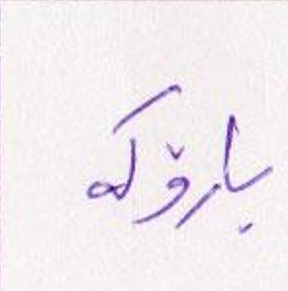 بارۆکە